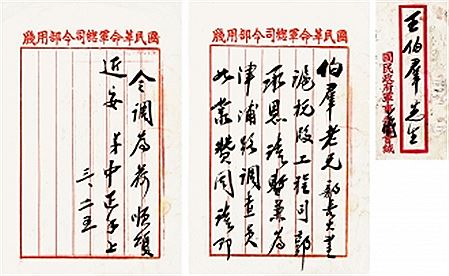 國民革命軍總司令部用牋
伯羣老兄部長大鑒
滬杭段工程司郭
承恩請暫兼為
津浦路調查員
如蒙贊同請即
國民革命軍總司令部用牋
令調為荷順頌
近安 弟中正手上
三、二五
王伯羣先生
國民政府軍事